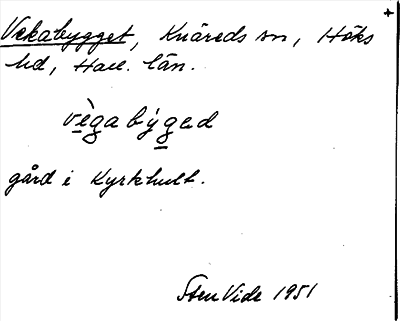 Vekabygget, Knäreds sn, Höks
hd, Hall. län.
vègabýged
gård i Kyrkhult.
Sten Vide 1951